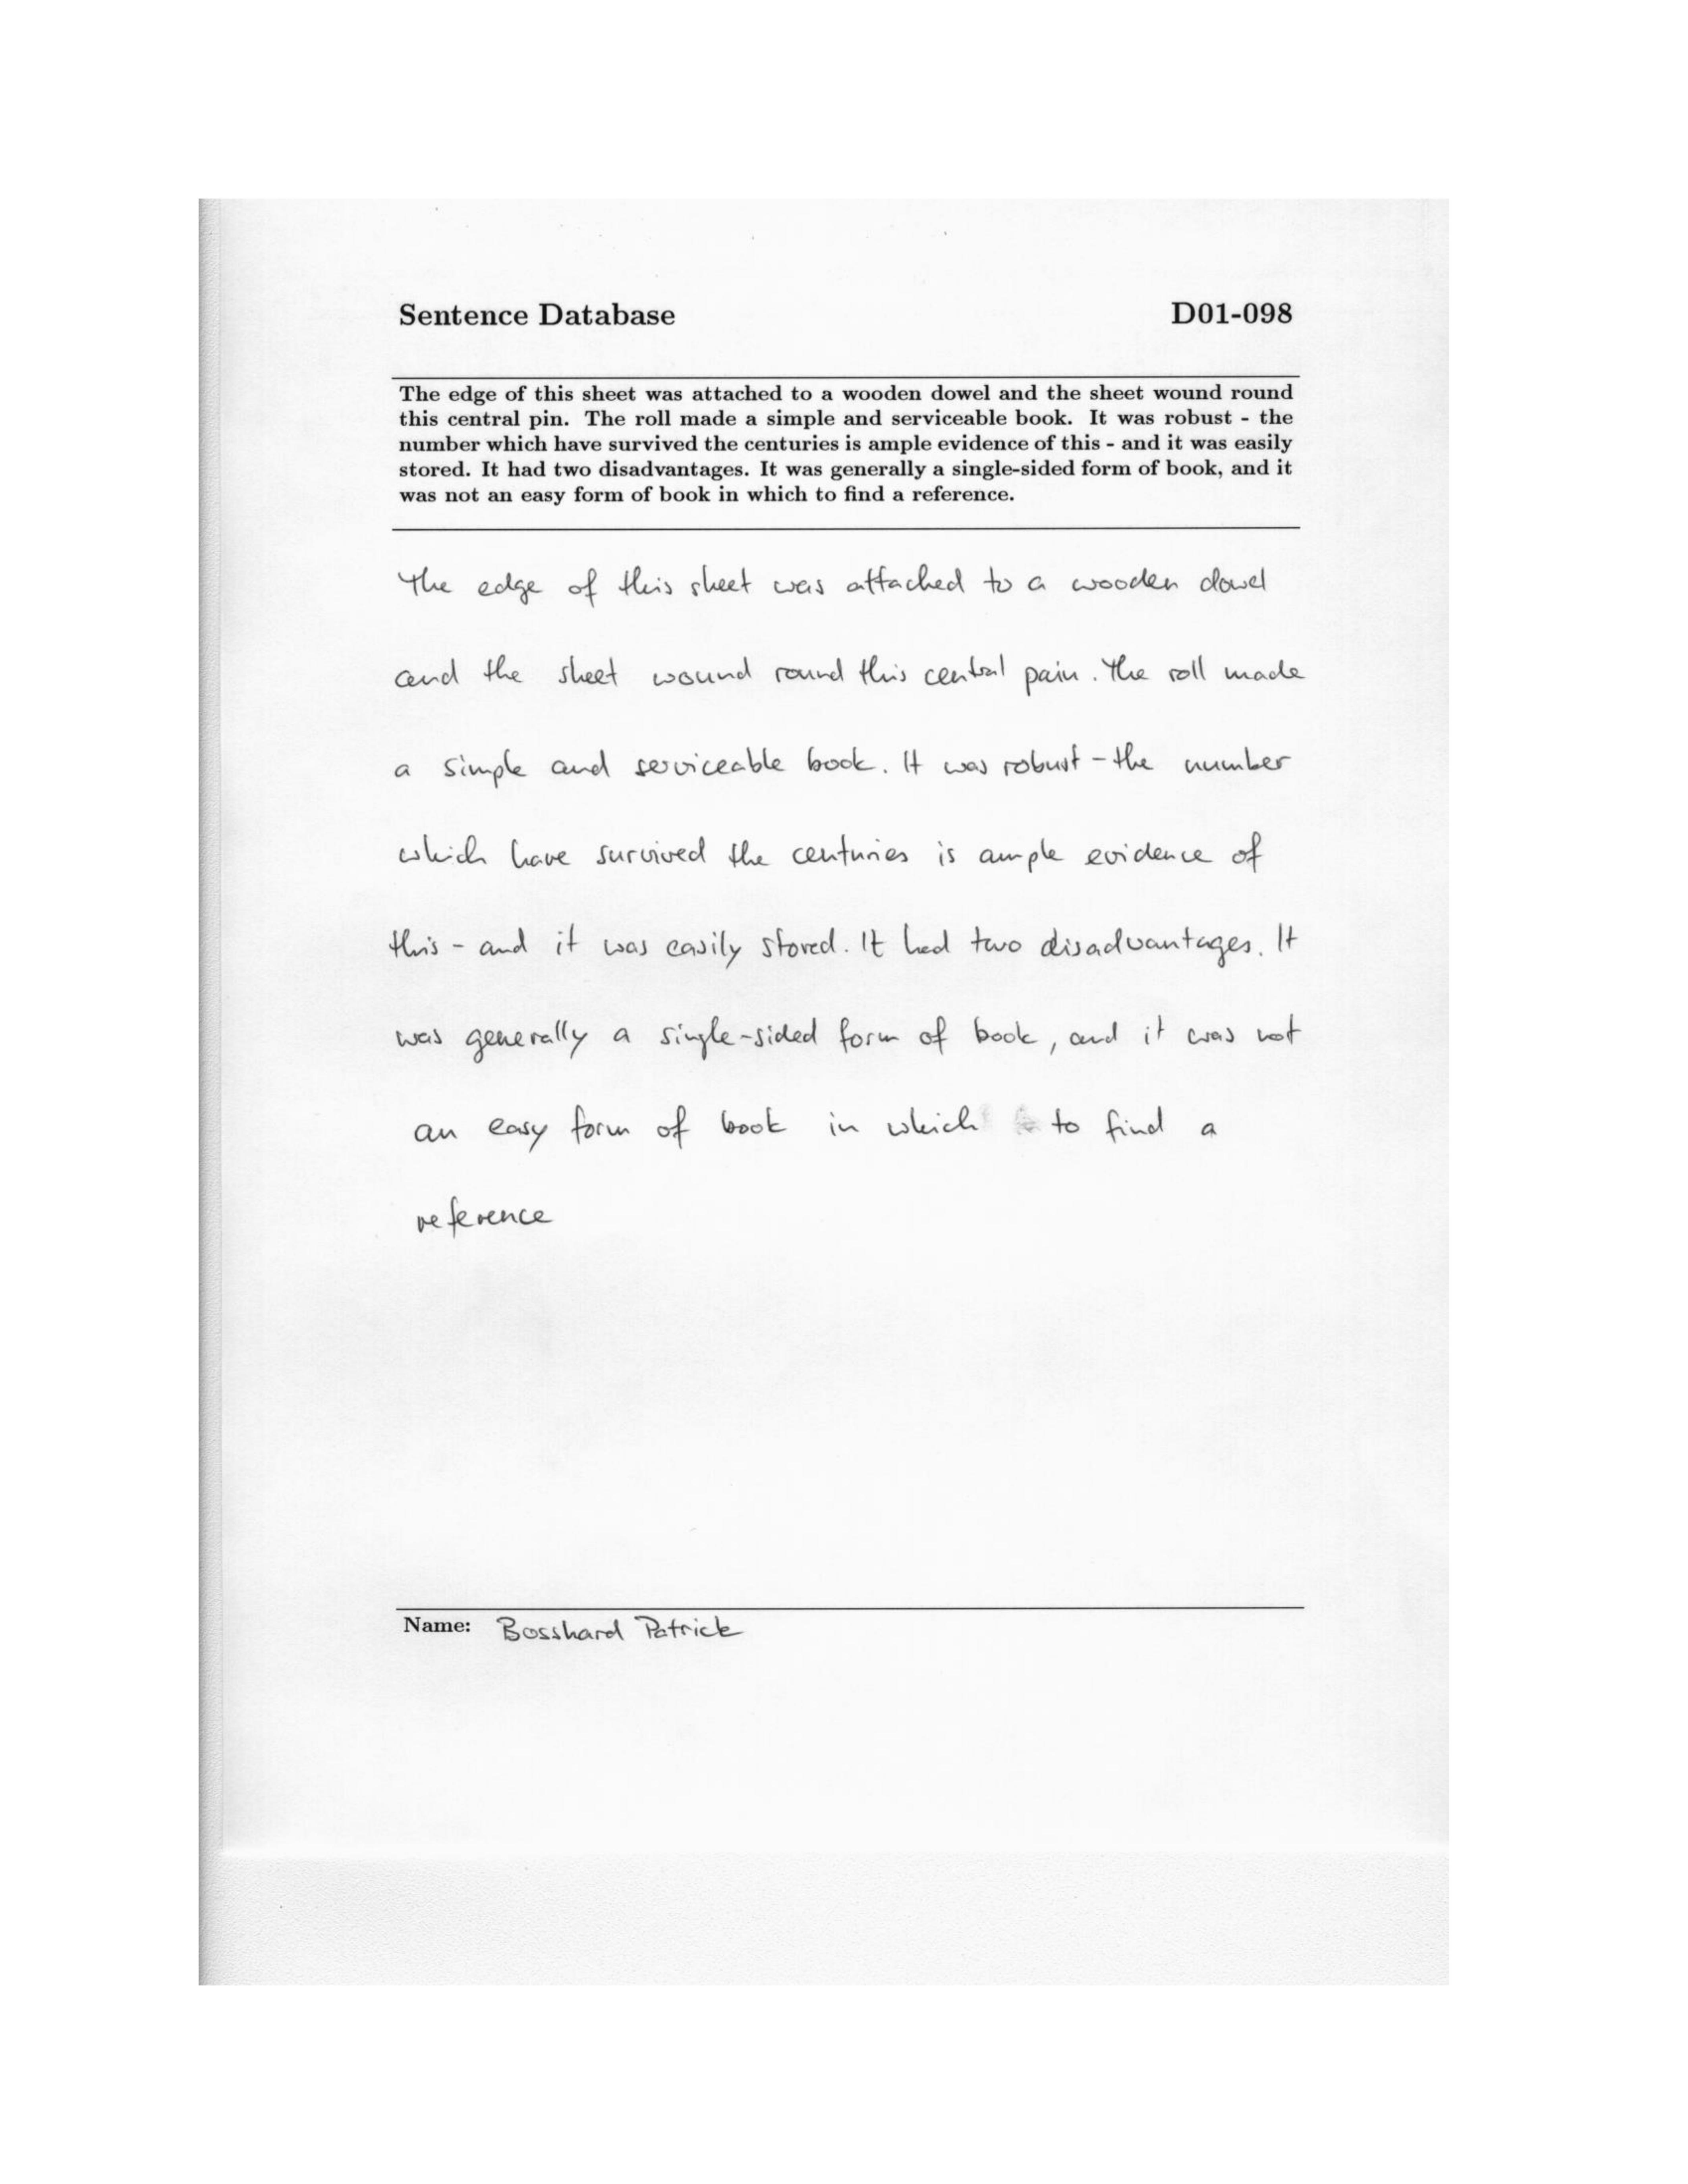 Sentence Database D01-098
The edge of this sheet was attached to a wooden dowel and the sheet wound round
this central pin. The roll made a simple and serviceable book. It was robust - the
number which have survived the centuries is ample evidence of this - and it was easily
stored. It had two disadvantages. It was generally a single-sided form of book, and it
was not an easy form of book in which to find a reference.
The edge of this sheet was attached to a wooden dowel
and the sheet wound round this central pain. The roll made
a simple and serviceable book. It was robust - the number
which have survived the centuries is ample evidence of
this - and it was easily stored. It had two disadvantages. It
was generally a single-sided form of book, and it was not
an easy form of book in which to find a
reference
Name: Bosshard Patrick